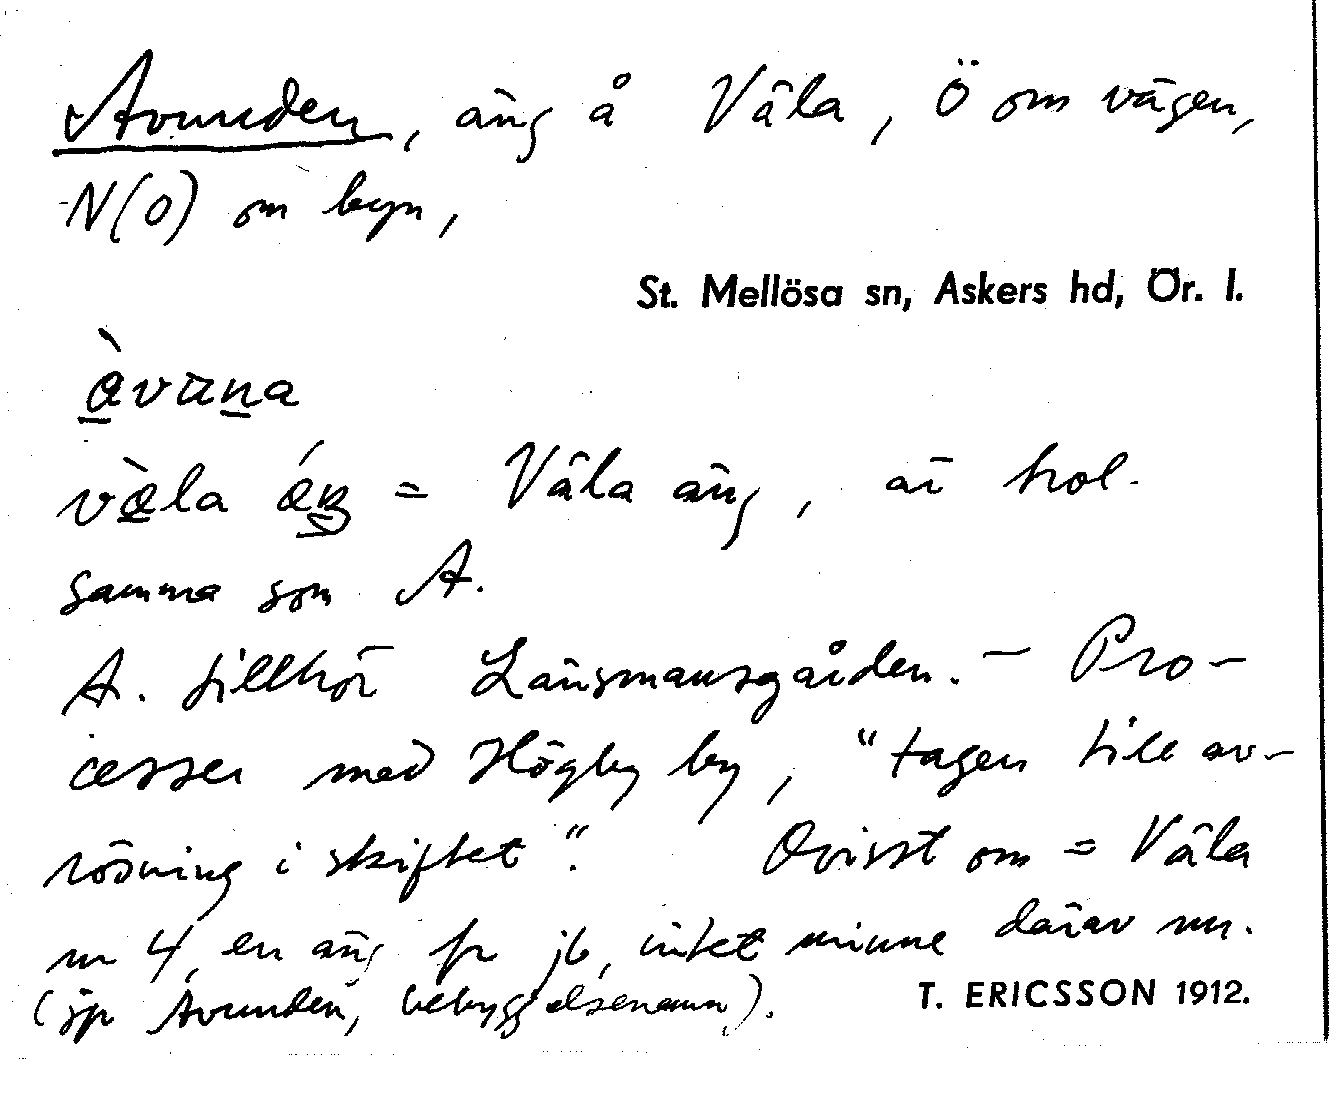 Avunden, äng å Väla, Ö om vägen,
N(O) om byn,
St. Mellösa sn, Askers hd, Ör. l.
àvuna
væ̀la ǽŋ = Väla äng, är hol-
samma som A.
A. tillhör Länsmansgården. – Pro-
cesser med Högby by, "tagen till av-
rösning i skiftet". Ovisst om = Väla
nr 4, en äng fr jb, intet minne därav nu.
(jp Avunden, bebyggelsenamn).
T. ERICSSON 1912.